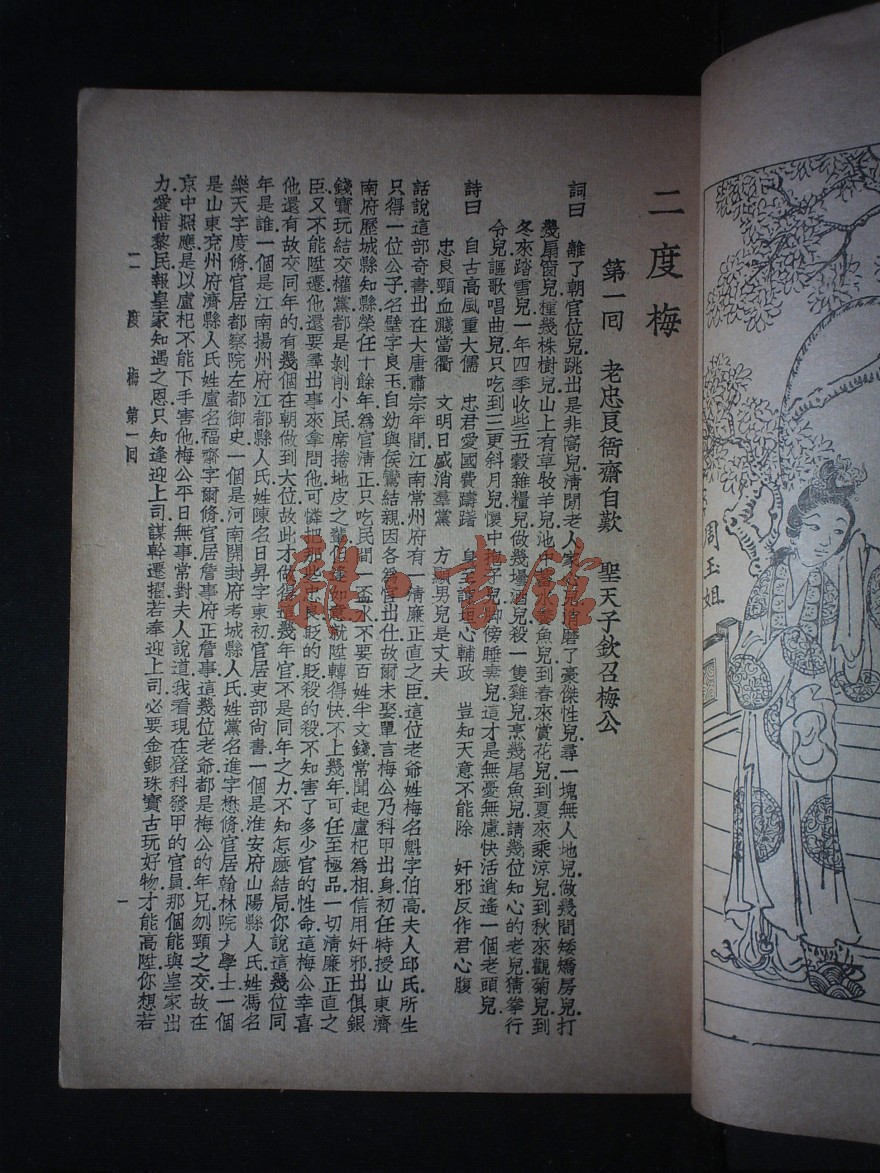 周玉姐
二度梅
第一回 老忠良衙齋自歎 聖天子欽召梅公
詞曰 離了朝官位兒跳出是非窩兒清閒老人家 兒消磨了豪傑性兒尋一塊無人地兒做幾間矮矯房兒打
幾扇窗兒種幾株樹兒山上有草牧羊兒池中 魚兒到春來賞花兒到夏來乘涼兒到秋來觀菊兒到
冬來踏雪兒一年四季收些五穀雜糧兒做幾壜酒兒殺一隻雞兒烹幾尾魚兒請幾位知心的老兒猜拳行
令兒謳歌唱曲兒只吃到三更斜月兒懷中抱子兒脚傍睡妻兒這才是無憂無慮快活逍遙一個老頭兒
詩曰 自古高風重大儒 忠君愛國費躊躇 身 坦心輔政 豈知天意不能除 奸邪反作君心腹
忠良頸血濺當衢 文明日盛消羣黨 方顯男兒是丈夫
話說這部奇書出在大唐肅宗年間江南常州府有一清廉正直之臣這位老爺姓梅名魁字伯高夫人邱氏所生
只得一位公子名璧字良玉自幼與侯鸞結親因各爲官出仕故爾未娶單言梅公乃科甲出身初任特授山東濟
南府歷城縣知縣榮任十餘年爲官清正只吃民間一盃水不要百姓半文錢常聞起盧杞爲相信用奸邪出俱銀
錢寶玩結交權黨都是剝削小民席捲地皮之輩伯 如意就陞轉得快不上幾年可任至極品一切清廉正直之
臣又不能陞遷他還要尋出事來拿問他可憐把那些忠良貶的貶殺的殺不知害了多少官的性命這梅公幸喜
他還有故交同年的有幾個在朝做到大位故此才做得這幾年官不是同年之力不知怎麽結局你說這幾位同
年是誰一個是江南揚州府江都縣人氏姓陳名日昇字東初官居吏部尙書一個是淮安府山陽縣人氏姓馮名
樂天字度修官居都察院左都御史一個是河南開封府考城縣人氏姓黨名進字懋修官居翰林院大學士一個
是山東兖州府濟縣人氏姓盧名福齋字爾修官居詹事府正詹事這幾位老爺都是梅公的年兄刎頸之交故在
京中照應是以盧杞不能下手害他梅公平日無事常對夫人說道我看現在登科發甲的官員那個能與皇家出
力愛惜黎民報皇家知遇之恩只知逢迎上司謀幹遷擢若奉迎上司必要金銀珠寶古玩好物才能高陞你想若
二度梅 第一回
一
龍·書館